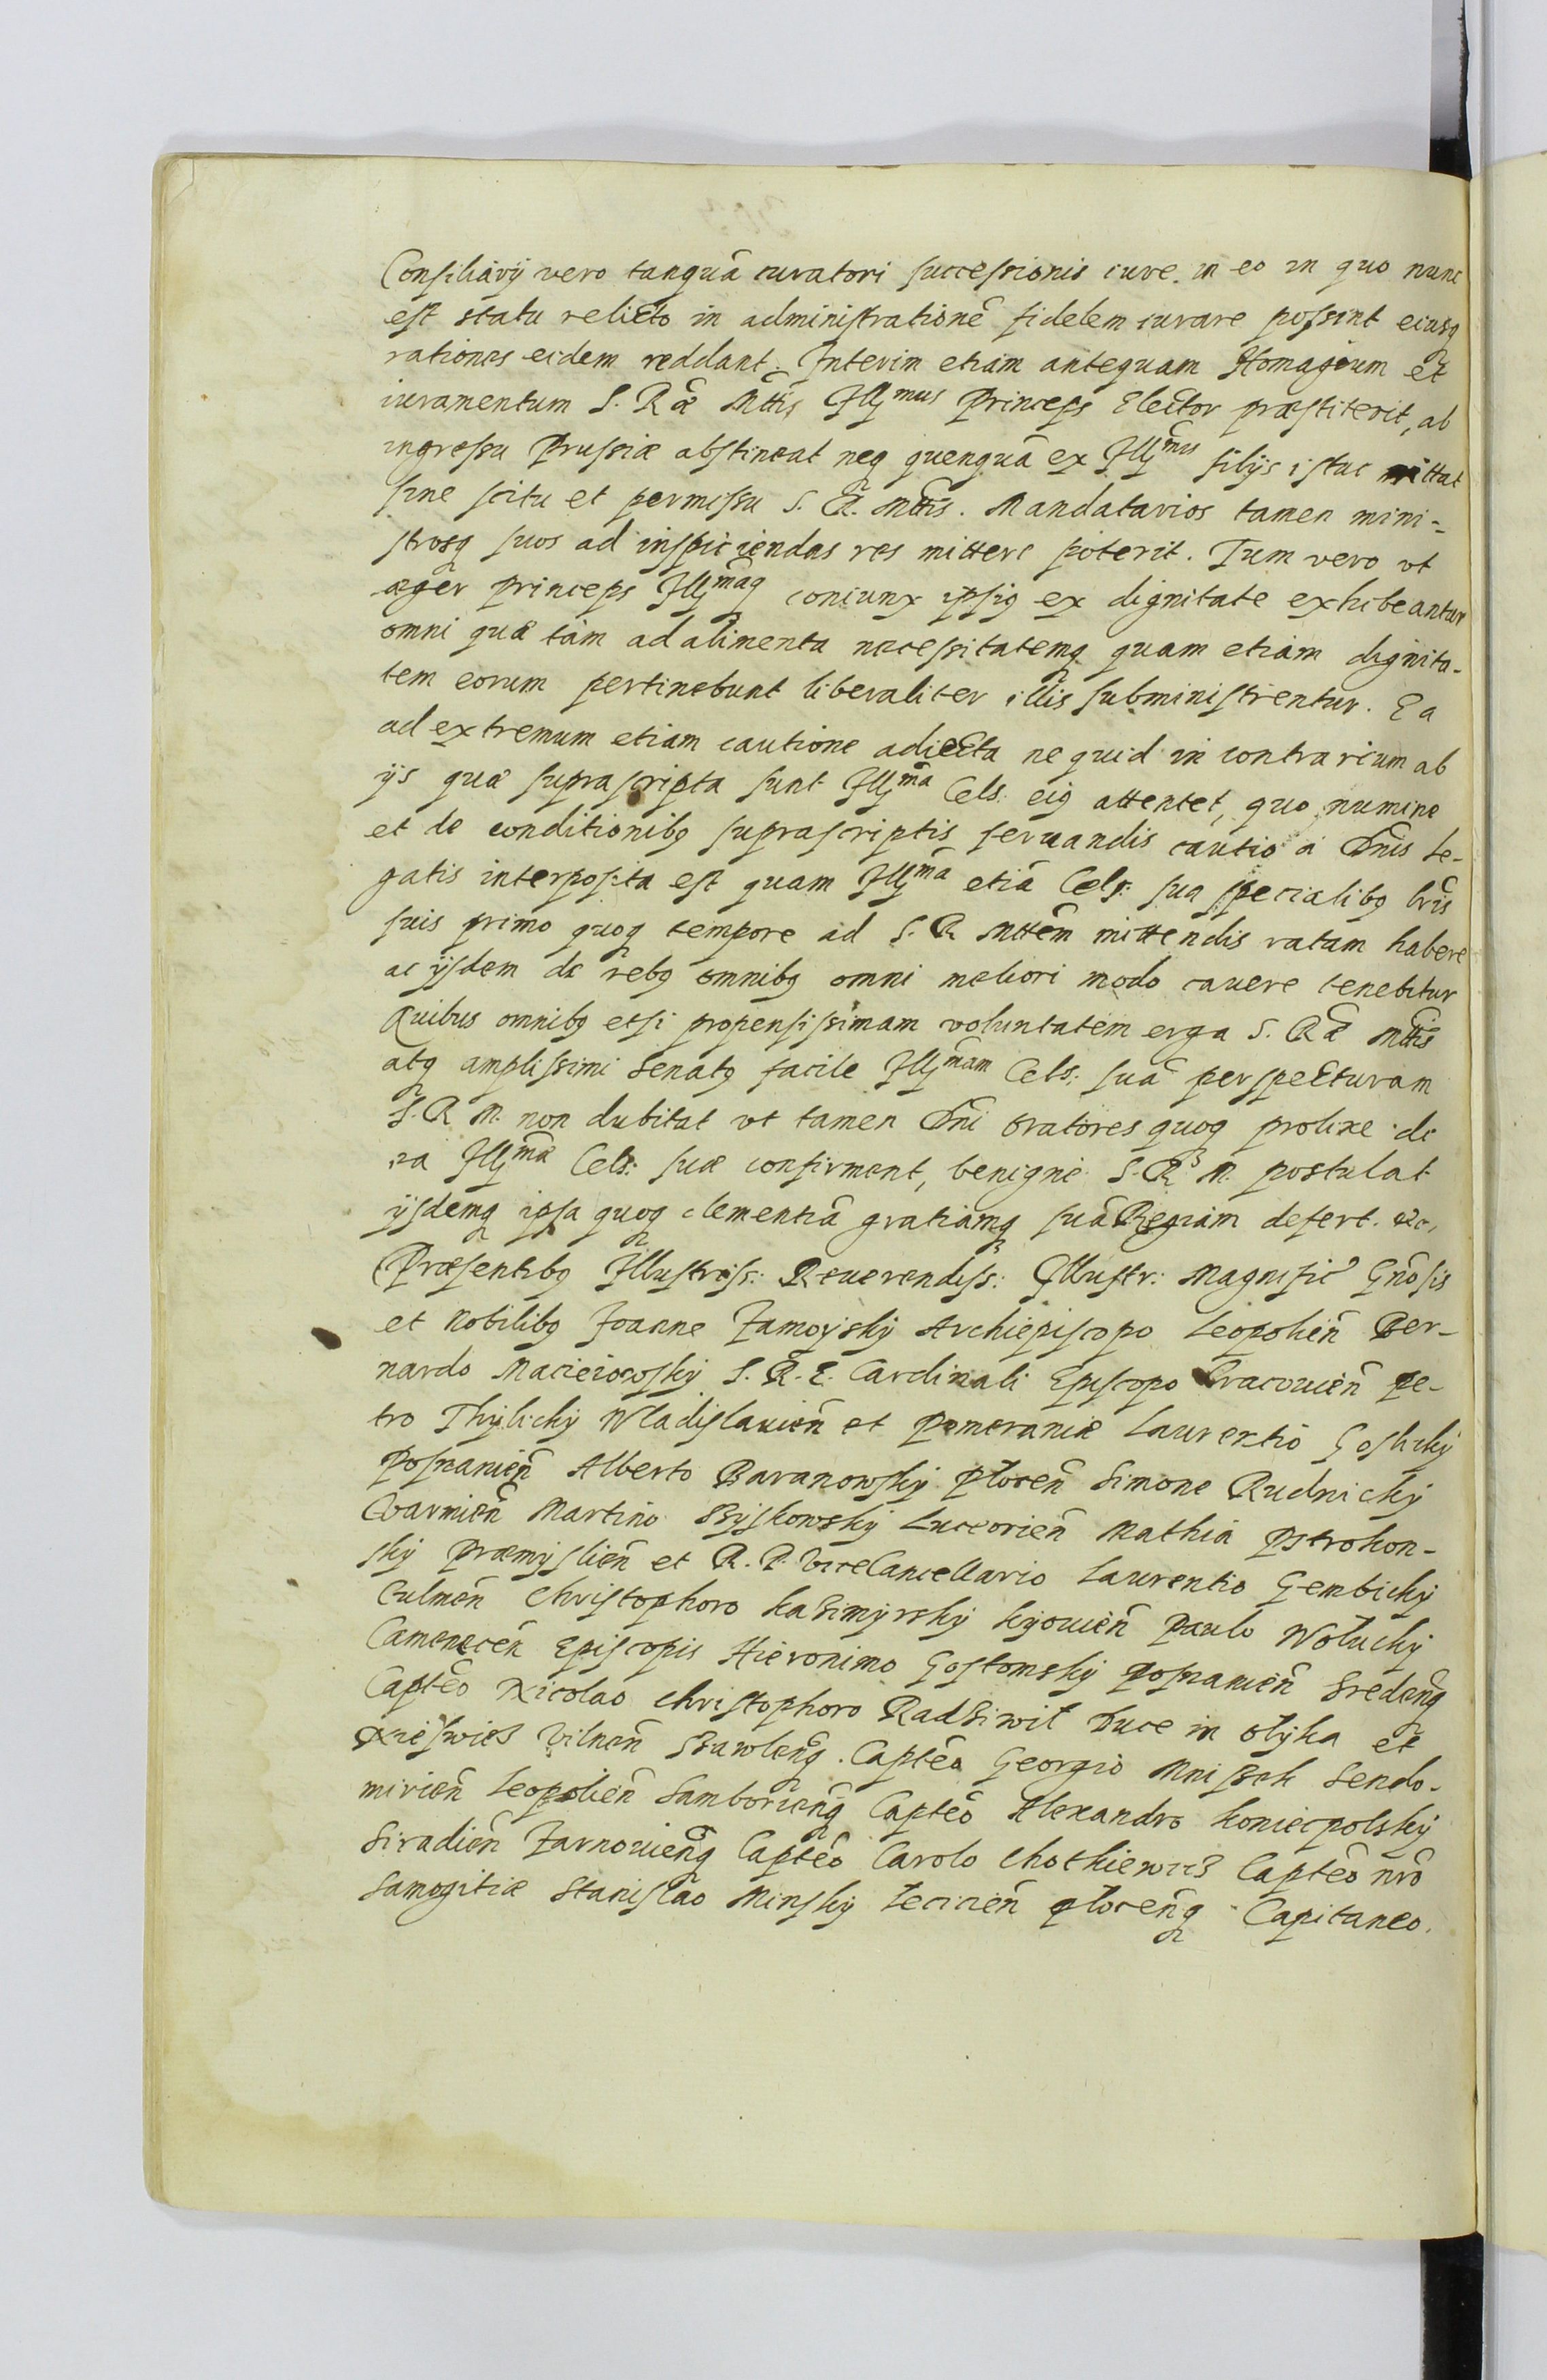 Consiliarij vero tanquā curatori successionis iure. in eo in quo nunc
est statu relicto in administrationē fidelem curare possint eiusq
rationes eidem reddant. Interim etiam antequam Homagium et
iuramentum S. R æ Mttis Illmus Princeps Elector præstiterit, ab
ingressu Prussiæ abstineat neq quenquā ex Illmis filijs istuc mittat
sine scitu et permissu S. R. Mttis. Mandatarios tamen mini-
strosq suos ad inspiciendas res mittere poterit. Tum vero vt
æger princeps Illmaq coniunx ipsiq ex dignitate exhibeantur
omni quæ tam ad alimenta necessitatemq quam etiam dignita-
tem eorum pertinebunt liberaliter illis subministrentur. Ea
ad extremum etiam cautione adiecta ne quid in contrarium ab
ijs quæ suprascripta sunt Illma Cels: eiq attentet, quo numine
et de conditionibq suprascriptis seruandis cautio a Dnis Le-
gatis interposita est quam Illma etiā Cels: sua specialibq lris
suis primo quoq tempore ad S. R Mttem mittendis ratam habere
ac ijsdem de rebq omnibq omni meliori modo cauere tenebitur
Quibus omnibq etsi propensissimam voluntatem erga S. R æ Mttis
atq amplissimi Senatq facile Illmam Cels: suā perspecturam
S. R M. non dubitat vt tamen Dni oratores quoq prolixe de
ea Illmæ Cels: suæ confirment, benigne S. R M. postulat
ijsdemq ipsa quoq clementiā gratiamq suā Regiam defert. etc,
Præsentibq Illustriss: Reuerendiss: Illustr: Magnific Gnosis
et Nobilibq Joanne Zamoyskÿ Archiepiscopo Leopolien̄ Ber-
nardo Macieiowskÿ S. R. E. Cardinali Episcopo Cracouien̄ Pe-
tro Thÿlickÿ Wladislauien̄ et Pomeraniæ Laurentio Goslickÿ
Posnanien̄ Alberto Baranowskÿ Plocen̄ Simone Rudnickÿ
Warmien̄ Martino Szÿskowskÿ Luceorien̄ Mathia Pstrokon-
skÿ Præmÿslien̄ et R. P. ViceCancellario Laurentio Gembickÿ
Culmen̄ Christophoro Kazimÿrskÿ Kÿouien̄ Paulo Wołuckÿ
Camenecen̄ Episcopis Hieronimo Gostomskÿ Posnanien̄ Sredenq
Captēo Nicolao Christophoro Radziwił Duce in Ołÿka et
Nieswies Vilnen̄ Szawlenq. Captēo Georgio Mniszek Sendo-
mirien̄ Leopolien̄ Samborienq Captēo Alexandro Koniecpolskÿ
Siradien̄ Zarnouienq Captēo Carolo Chothiewicz Captēo nrō
Samogitiæ Stanislao Minskÿ Lecicien̄ Płocenq Capitaneo.